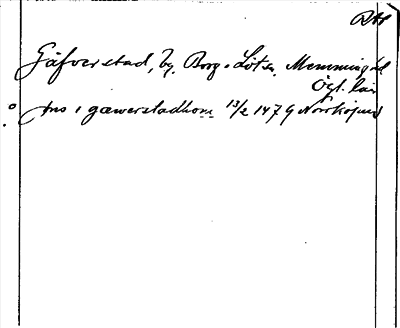 RAP
Gäfverstad, by. Borg o Löts sn, Memmings hd
Ögl. län
Jns i gæwerstadhom 13/2 1479 Norrköping